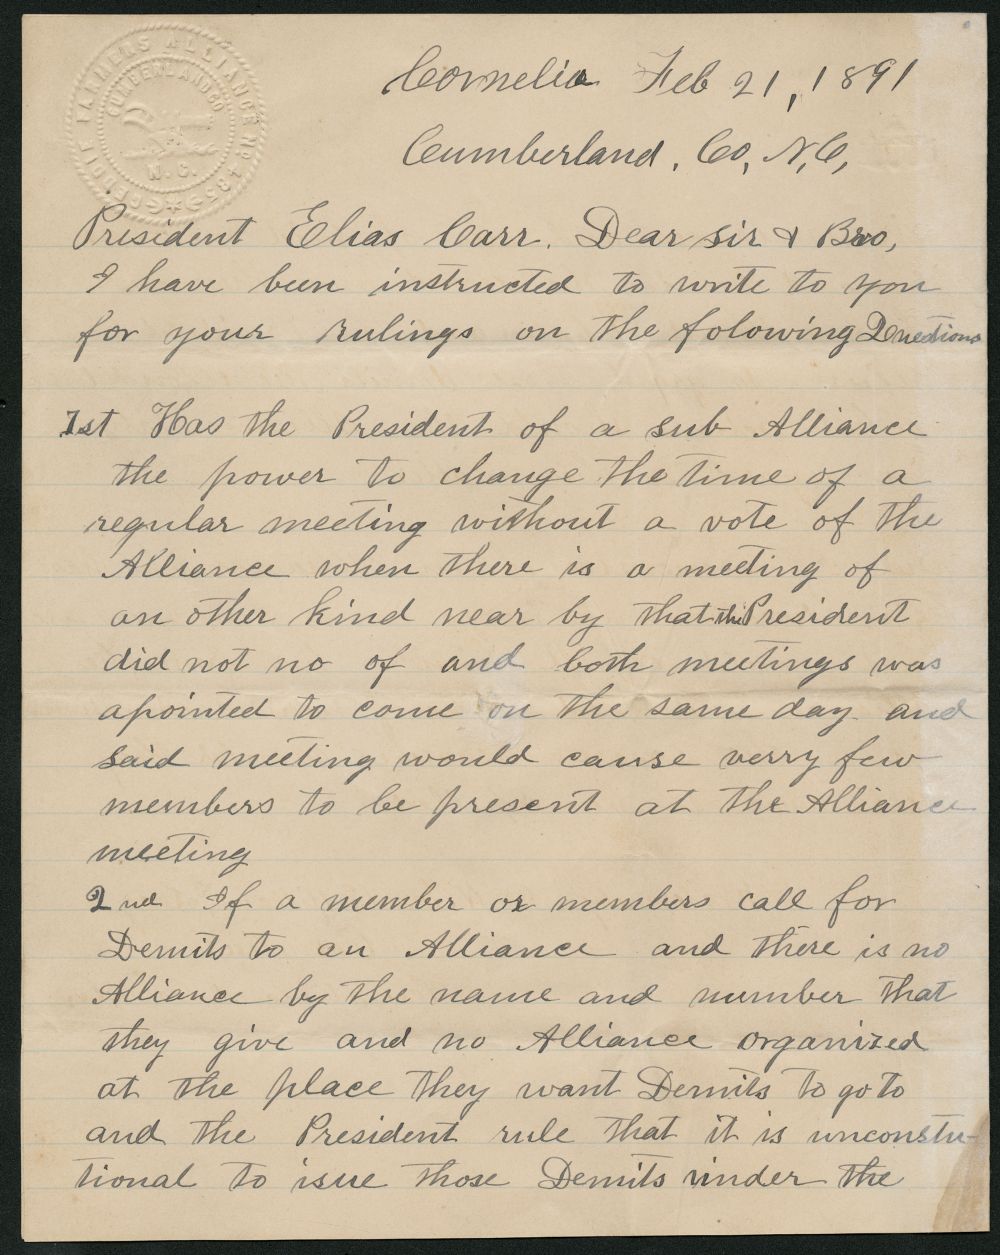 FARMERS ALLIANCE No 785
CUMBERLAND CO.
N. C.
Cornelia Feb 21, 1891
Cumberland, Co, N,C,
President Elias Carr. Dear sir & Bro,
I have been instructed to write to you
for your rulings on the folowing Questions
1st Has the President of a sub Alliance
the power to change the time of a
regular meeting without a vote of the
Alliance when there is a meeting of
an other kind near by that the President
did not no of and both meetings was
apointed to come on the same day and
said meeting would cause verry few
members to be present at the Alliance
meeting
2nd If a member or members call for
Demits to an Alliance and there is no
Alliance by the name and number that
they give and no Alliance organized
at the place they want Demits to go to
and the President rule that it is unconstu-
tional to isue those Demits under the